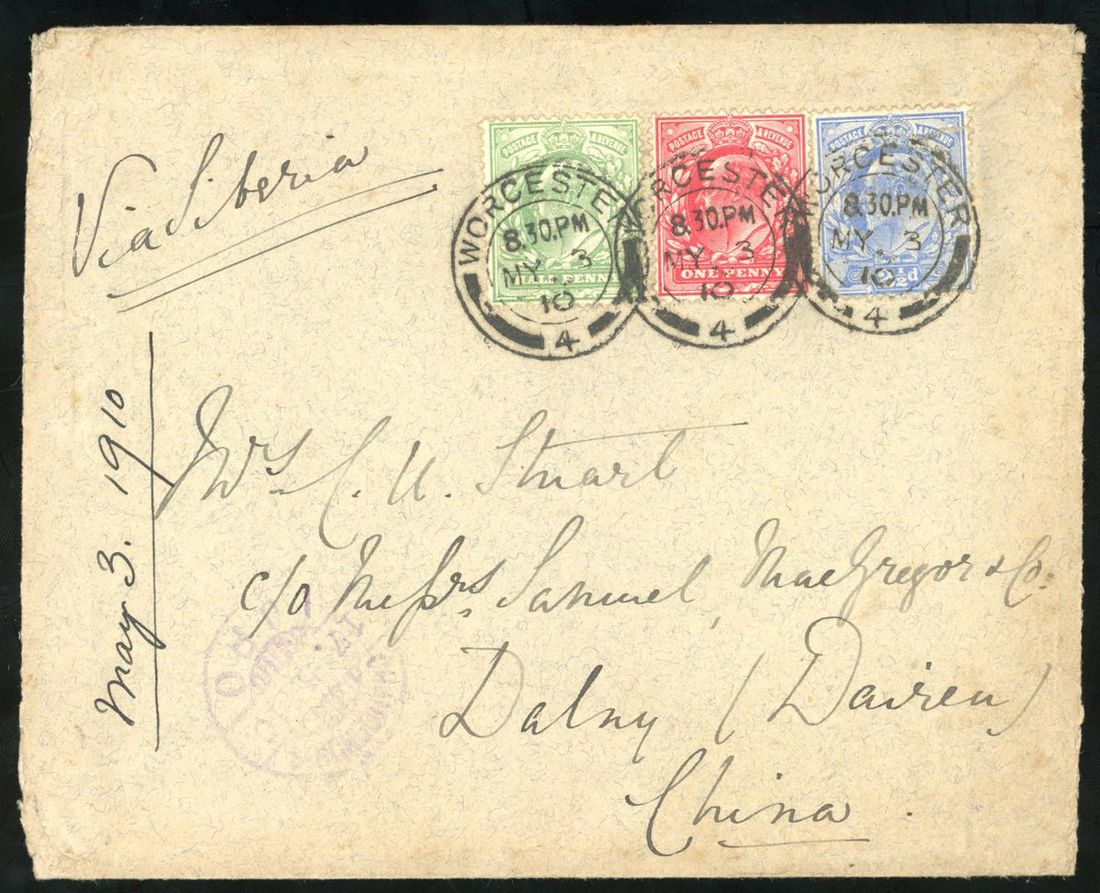 Via Siberia
POSTAGE & REVENUE
HALFPENNY
POSTAGE & REVENUE
ONE PENNY
POSTAGE & REVENUE
2½d
WORCESTER
8.30.PM
MY 3
10
4
WORCESTER
8.30.PM
MY 3
10
4
WORCESTER
8.30.PM
MY 3
10
4
May 3. 1910
Mrs C. U. Stuart
c/o Messrs Samuel MacGregor & Co.
Dalny (Dairen)
China.